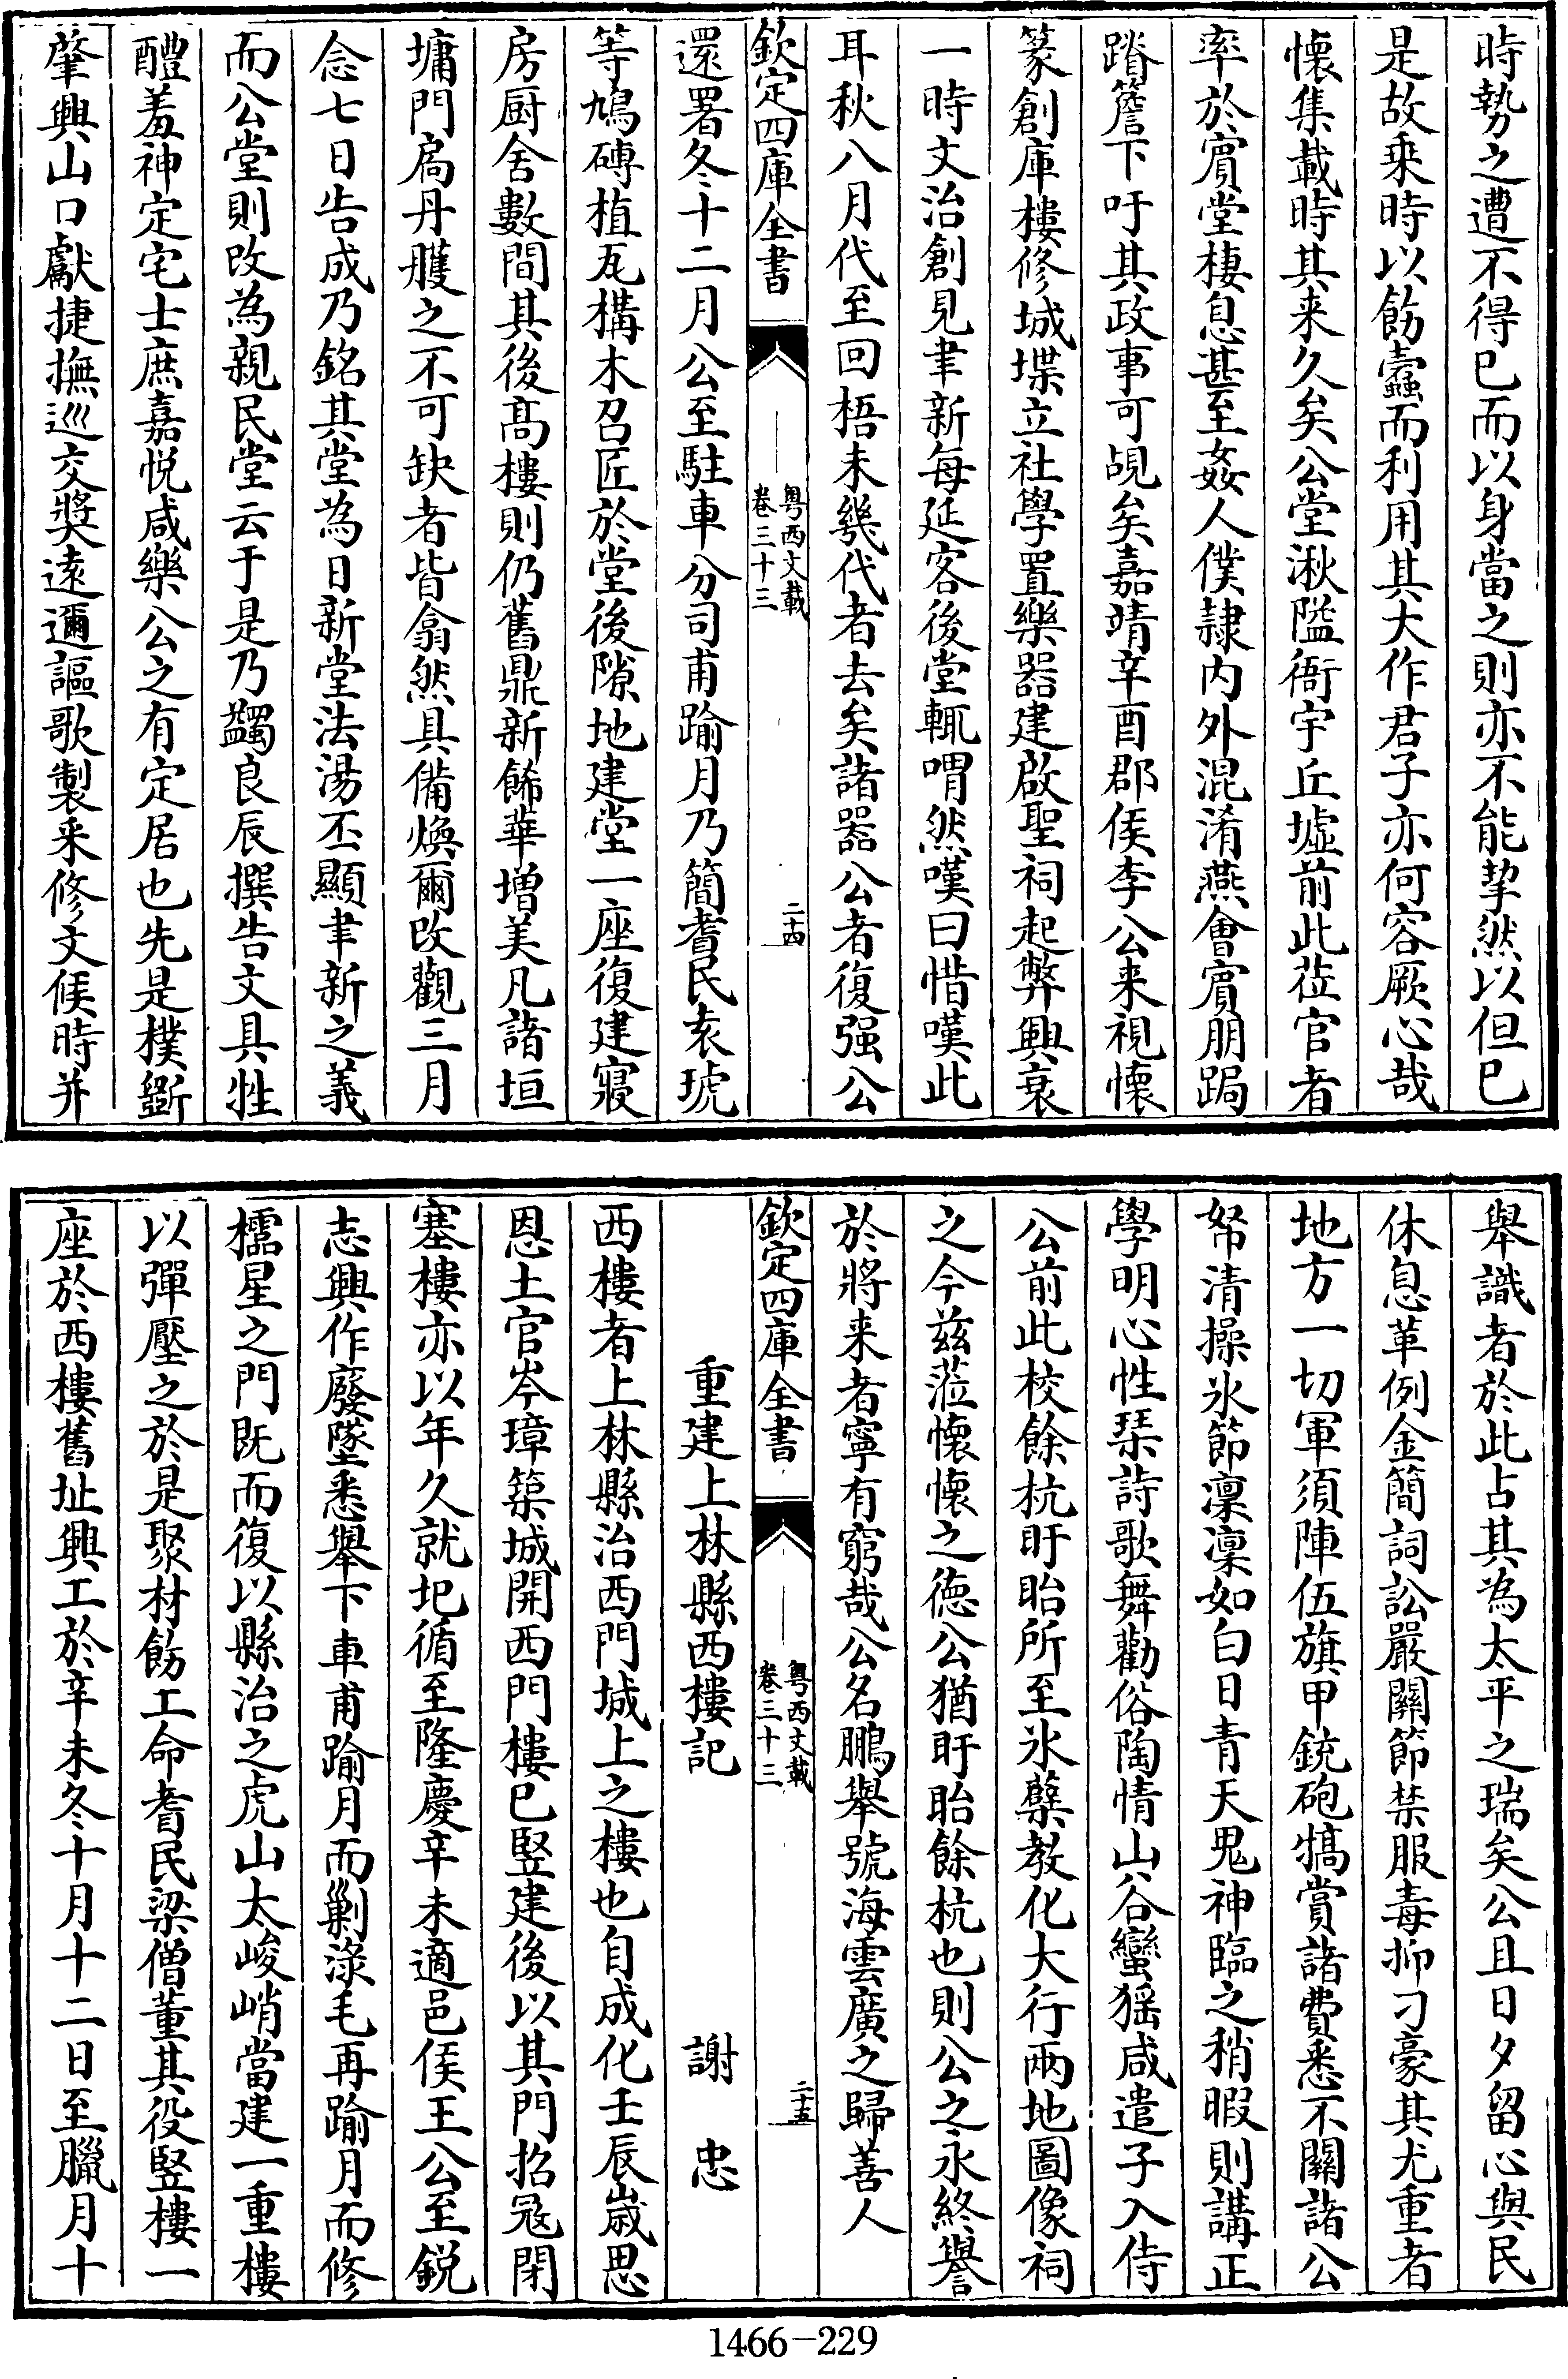 時勢之遭不得已而以身當之則亦不能挈然以但已
是故乗時以飭蠱而利用其大作君子亦何容厥心哉
懐集載時其来久矣公堂湫隘衙宇丘墟前此莅官者
率於賔堂棲息甚至姦人僕隷内外混淆燕會賔朋跼
蹐簷下吁其政事可覘矣嘉靖辛酉郡侯李公来視懐
篆創庫樓修城堞立社學置樂器建啟聖祠起弊興衰
一時文治創見聿新每延客後堂輒喟然嘆曰惜嘆此
耳秋八月代至回梧未幾代者去矣諸噐公者復强公
欽定四庫全書
粤西文載
卷三十三
二十四
還署冬十二月公至駐車分司甫踰月乃簡耆民袁琥
等鳩磚植瓦構木召匠於堂後隙地建堂一座復建寢
房厨舍數間其後髙樓則仍舊鼎新餙華増美凡諸垣
墉門扄丹雘之不可缺者皆翕然具備煥爾改觀三月
念七日告成乃銘其堂為日新堂法湯丕顯聿新之義
而公堂則改為親民堂云于是乃蠲良辰撰告文具牲
醴羞神定宅士庶嘉悦咸樂公之有定居也先是樸斵
肇興山口獻捷撫巡交奬逺邇謳歌製采修文候時并
舉識者於此占其為太平之瑞矣公且日夕留心與民
休息革例金簡詞訟嚴關節禁服毒抑刁豪其尤重者
地方一切軍須陣伍旗甲銃砲犒賞諸費悉不關諸公
帑清操氷節凜凜如白日青天鬼神臨之稍暇則講正
學明心性琹詩歌舞勸俗陶情山谷蠻猺咸遣子入侍
公前此校餘杭盱眙所至氷蘖教化大行兩地圖像祠
之今兹蒞懐懐之徳公猶盱眙餘杭也則公之永終譽
於將来者寧有窮哉公名鵬舉號海雲廣之歸善人
欽定四庫全書
粤西文載
卷三十三
二十五
重建上林縣西樓記　謝忠
西樓者上林縣治西門城上之樓也自成化壬辰嵗思
恩土官岑璋築城開西門樓已竪建後以其門招冦閉
塞樓亦以年久就圮循至隆慶辛未適邑侯王公至鋭
志興作廢墜悉舉下車甫踰月而剿淥毛再踰月而修
櫺星之門既而復以縣治之虎山太峻峭當建一重樓
以彈壓之於是聚材飭工命耆民梁僧董其役竪樓一
座於西樓舊址興工於辛未冬十月十二日至臘月十
1466-229